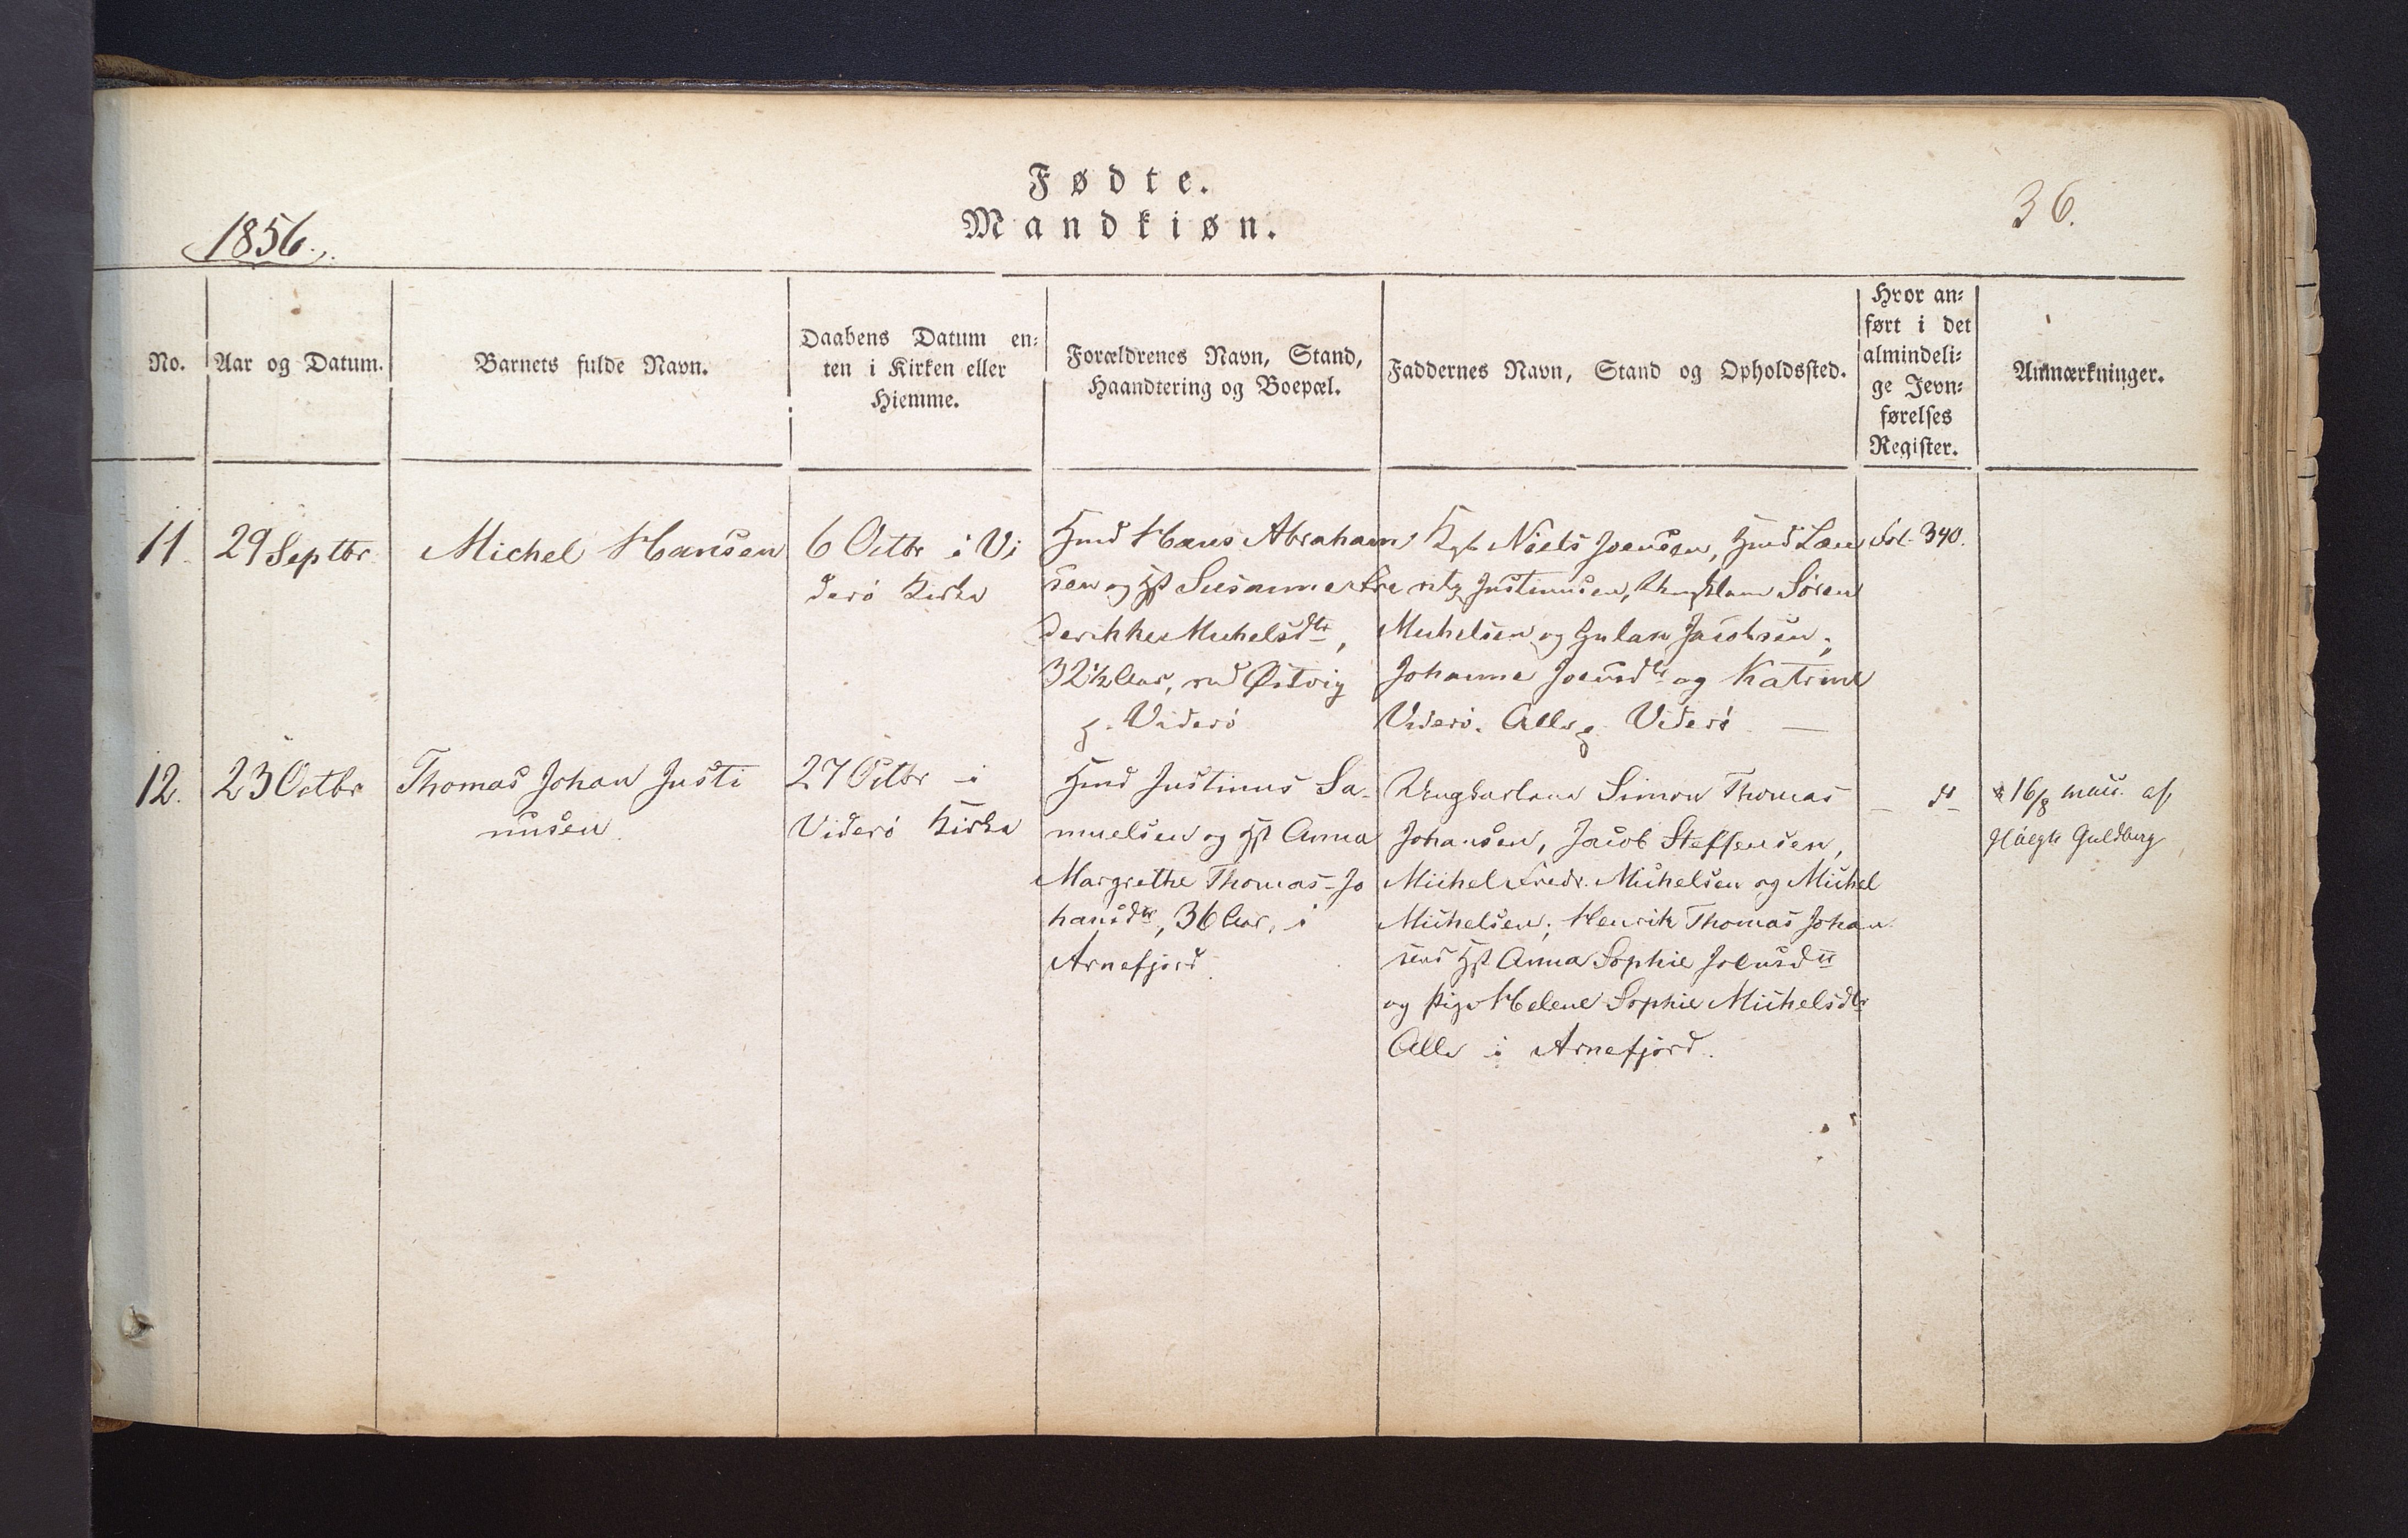 Fødte.
Mandkiøn.
36.
1856.
No.
Aar og Datum.
Barnets fulde Navn.
Daabens Datum en-
ten i Kirken eller
Hiemme.
Forældrenes Navn, Stand,
Haandtering og Boepæl.
Faddernes Navn, Stand og Opholdssted.
Hvor an-
ført i det
almindeli-
ge Jevn-
førelses
Register.
Anmærkninger.
11.
29 Septbr
Michel Hansen
6 Octbr i Vi
derö Kirke
Hmd Hans Abraham
sen og Hst Susanne Fre
derikke Michelsdtr,
32½ Aar, ved Østvig
p. Viderö
Kgb. Niels Joensen, Hmd Lau
ritz Justinusen, Ungkarlene Sören
Michelsen og Jacobsen;
Johanne Joensdtr og Katrine
Viderö. Alle p. Viderö —
Fol. 340.
12.
23 Octbr
Thomas Johan Justi
nusen
27 Octbr i
Viderö Kirke
Hmd Justinus Sa-
muelsen og Hst Anna
Margrethe Thomas-Jo
hansdtr, 36 Aar, i
Arnefjord
Ungkarlene Simon Thomas
Johansen, Jacob Steffensen,
Michel Fredr. Michelsen og Michel
Michelsen; Henrik Thomas Johan
sens Hst Anna Sophie Joensdtr
og Pige Helene Sophie Michelsdtr
Alle i Arnefjord.
— do
16/8 af
Guldberg